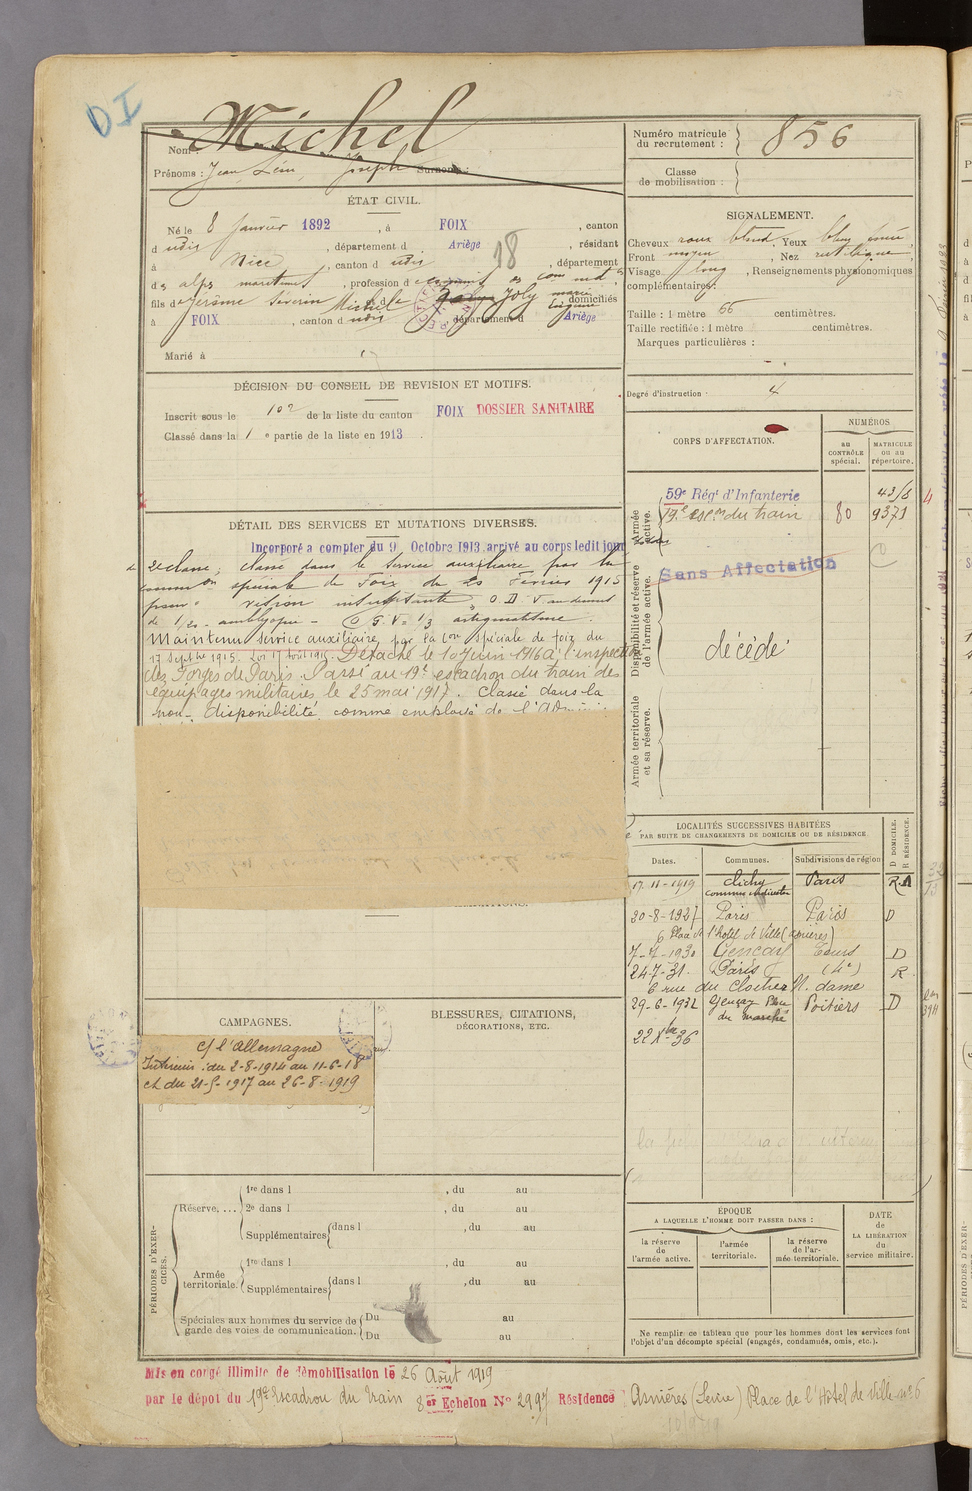 DI
Nom : Michel
Prénoms : Jean Léon, Joseph Surnoms :
Numéro matricule
du recrutement : 856
Classe
de mobilisation :
ÉTAT CIVIL.
Né le 8 Janvier 1892, à FOIX, canton
d udis, département d Ariège, résidant
à Nice, canton d udis, département
18
des alpes maritimes, profession d
fils de Jérôme Séverin Michel et de Joly domiciliés
à FOIX, canton d udis, département d Ariège
Marié à
SIGNALEMENT.
Cheveux roux blond. Yeux bleu
Front moyen, Nez rectiligne
Visage long, Renseignements physionomiques
complémentaires :
Taille : 1 mètre 66 centimètres.
Taille rectifiée : 1 mètre centimètres.
Marques particulières :
Degré d'instruction : 4
DÉCISION DU CONSEIL DE REVISION ET MOTIFS.
Inscrit sous le 102 de la liste du canton FOIX DOSSIER SANITAIRE
Classé dans la 1e partie de la liste en 1913.
CORPS D'AFFECTATION.
NUMÉROS
au CONTRÔLE spécial.
MATRICULE ou au répertoire.
Armée active.
59e Régt d'Infanterie
19e escon du train 80 9371
Disponibilité et réserve de l'armée active.
Sans Affectation
décédé
Armée territoriale et sa réserve.
DÉTAIL DES SERVICES ET MUTATIONS DIVERSES.
Incorporé a compter du 9 Octobre 1913, arrivé au corps ledit jour
2e classe, classé dans le service auxiliaire par la
spéciale de Foix du 20 Février 1915
pour vision insuffisante O.D V au dessous
de 1/20 - amblyopie - O G V = 1/3 astigmatisme.
Maintenu service auxiliaire, par la Con spéciale de foix du
17 Septbre 1915. Loi 17 Août 1915. Détaché le 10 Juin 1916 à l'inspection
des Forges de Paris. Passé au 19e escadron du train des
équipages militaires le 25 mai 1917. Classé dans la
non-disponibilité comme employé de l'Admini
LOCALITÉS SUCCESSIVES HABITÉES
PAR SUITE DE CHANGEMENTS DE DOMICILE OU DE RÉSIDENCE
Dates. Communes. Subdivisions de région D DOMICILE. R RÉSIDENCE.
17-11-1919 Clichy Paris R
30-8-1927 Paris Paris D
6 Place de l'hôtel de Ville (asnières)
7-7-1930 Gencay Tours D
24-7-31. Paris (4e) R.
6 rue du Cloitre N. dame
29-6-1932 Gençay Place Poitiers D
du marché
22 Xbre 36
CAMPAGNES.
c/ l'Allemagne
Intérieur : du 2-8-1914 au 11-6-18
et du 21-5-1917 au 26-8-1919
BLESSURES, CITATIONS,
DÉCORATIONS, ETC.
PÉRIODES D'EXERCICES.
Réserve, ...
1re dans l, du au
2e dans l, du au
Supplémentaires dans l, du au
Armée territoriale.
1re dans l, du au
Supplémentaires dans l, du au
Spéciales aux hommes du service de
garde des voies de communication.
Du au
Du au
ÉPOQUE
A LAQUELLE L'HOMME DOIT PASSER DANS :
la réserve de l'armée active.
l'armée territoriale.
la réserve de l'armée territoriale.
DATE
de
LA LIBÉRATION
du
service militaire.
Ne remplir ce tableau que pour les hommes dont les services font
l'objet d'un décompte spécial (engagés, condamnés, omis, etc.).
Mis en congé illimité de démobilisation le 26 Août 1919
par le dépot du 19e Escadron du train 8er Echelon No 2997 Résidence : Asnières (Seine) Place de l'Hôtel de Ville no 6